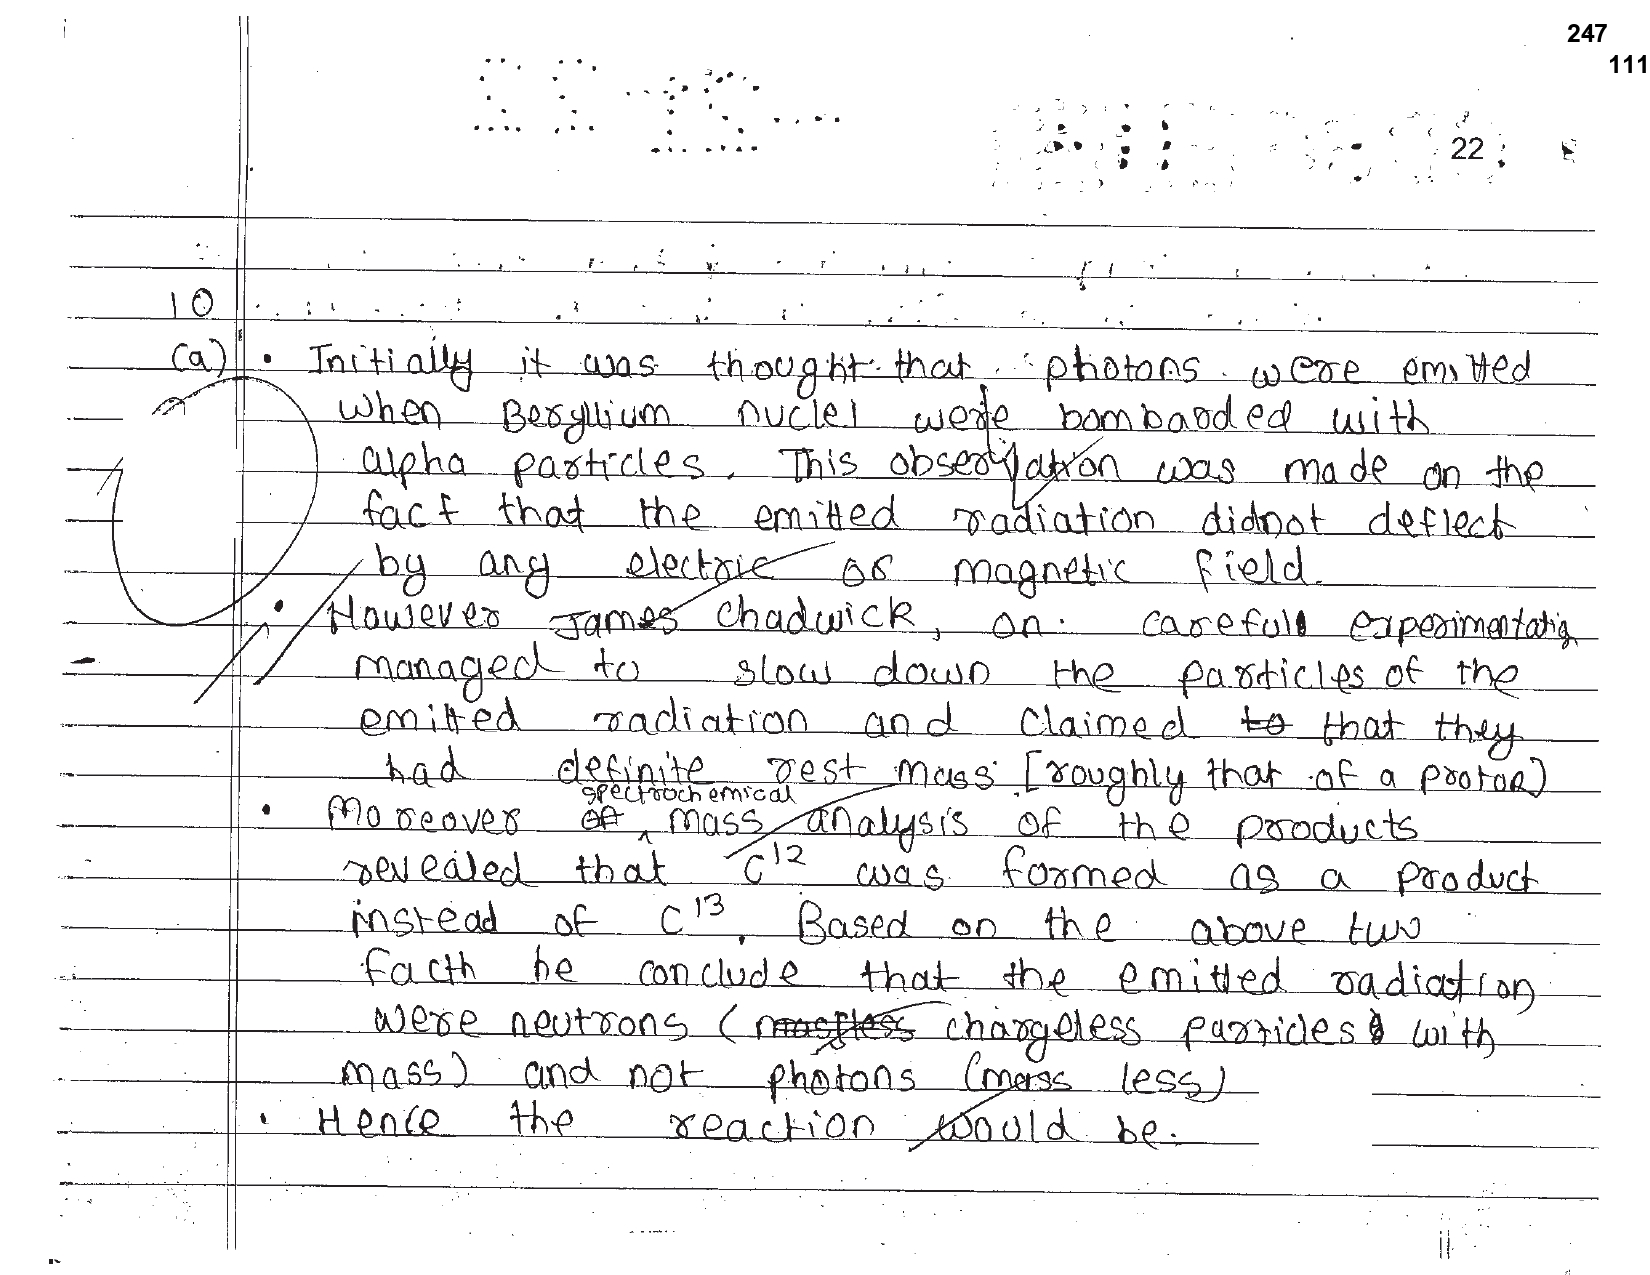 247
111
22
10
(a) • Initially it was thought that photons were emitted
when Beryllium nuclei were bombarded with
alpha particles. This observation was made on the
fact that the emitted radiation didnot deflect
by any electric or magnetic field.
• However James Chadwick, on careful experimentatin
managed to slow down the particles of the
emitted radiation and claimed to that they
had definite rest mass [roughly that of a proton)
spectrochemical
• Moreover of mass analysis of the products
revealed that C¹² was formed as a product
instead of C¹³. Based on the above two
facth he conclude that the emitted radiation
were neutrons (massless chargeless particles with
mass) and not photons (mass less)
• Hence the reaction would be.